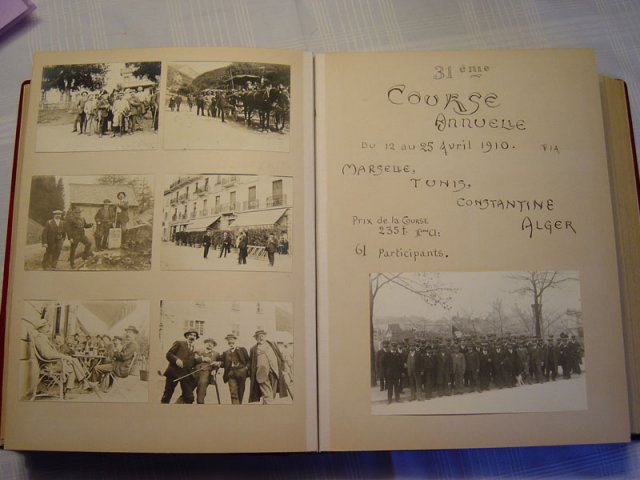 31 ème
COURSE
ANNUELLE
DU 12 au 25 Avril 1910. VIA
MARSEILLE,
TUNIS,
CONSTANTINE
ALGER
Prix de la Course
235f
61 Participants.